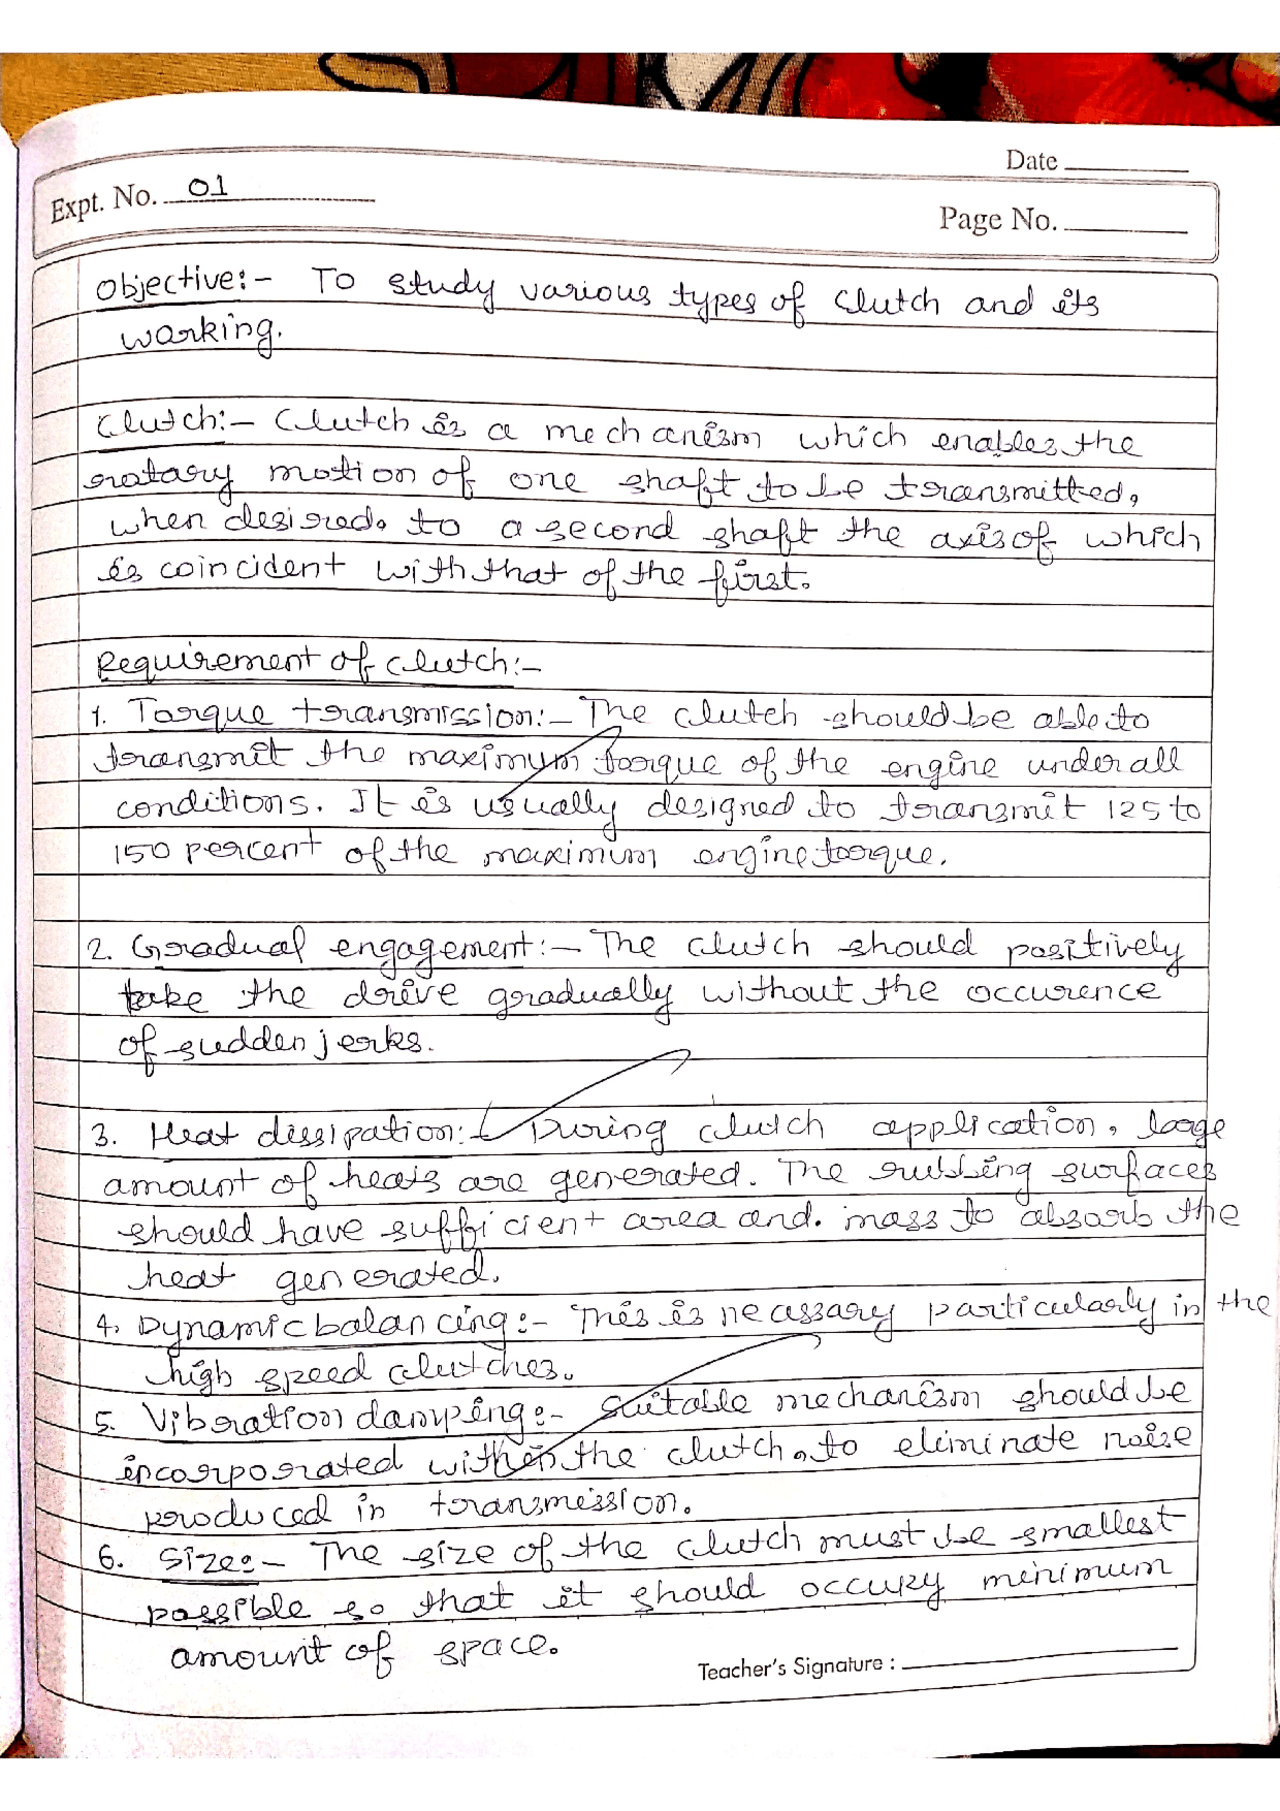 Date
Expt. No. 01
Page No.
Objective:- To study various types of clutch and its
working.
Clutch:- Clutch is a mechanism which enables the
rotary motion of one shaft to be transmitted,
when desired, to a second shaft the axis of which
is coincident with that of the first.
Requirement of clutch:-
1. Torque transmission:- The clutch should be able to
transmit the maximum torque of the engine under all
conditions. It is usually designed to transmit 125 to
150 percent of the maximum engine torque.
2. Gradual engagement:- The clutch should positively
take the drive gradually without the occurence
of sudden jerks.
3. Heat dissipation:- During clutch application, large
amount of heats are generated. The rubbing surfaces
should have sufficient area and. mass to absorb the
heat generated.
4. Dynamic balancing:- This is necassary particularly in the
high speed clutches.
5. Vibration damping:- Suitable mechanism should be
incorporated within the clutch, to eliminate noise
produced in transmission.
6. Size:- The size of the clutch must be smallest
possible so that it should occupy minimum
amount of space.
Teacher's Signature :